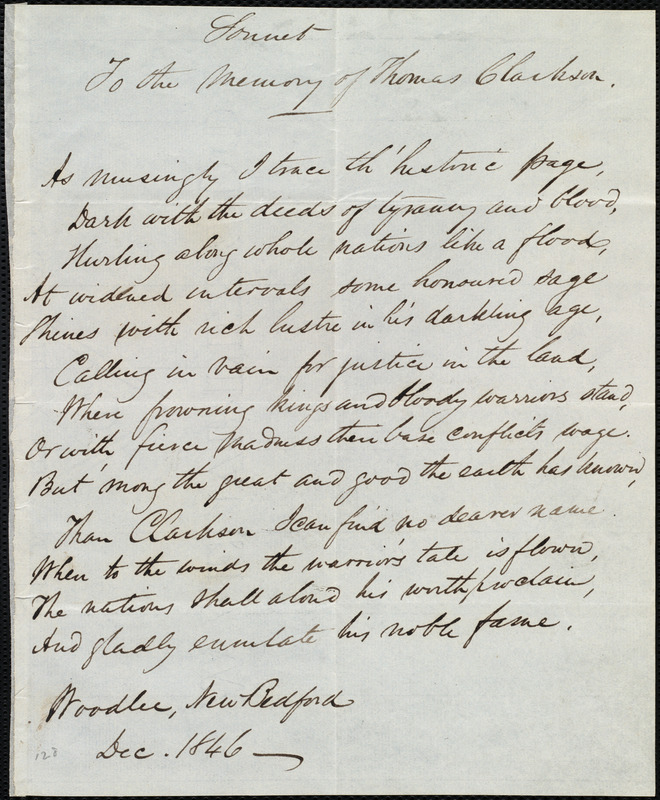 Sonnet
To the memory of Thomas Clarkson.
As musingly I trace th' historic page,
Dark with the deeds of tyranny and blood,
Hurling along whole nations like a flood,
At widened intervals some honoured sage
Shines with rich lustre in his darkling age,
Calling in vain for justice in the land,
When frowning kings and bloody warriors stand,
Or with fierce madness then base conflicts wage.
But 'mong the great and good the earth has known,
Than Clarkson I can find no dearer name.
When to the winds the warrior's tale is flown,
The nations shall aloud his worth proclaim,
And gladly emulate his noble fame.
Woodlee, New Bedford
Dec. 1846